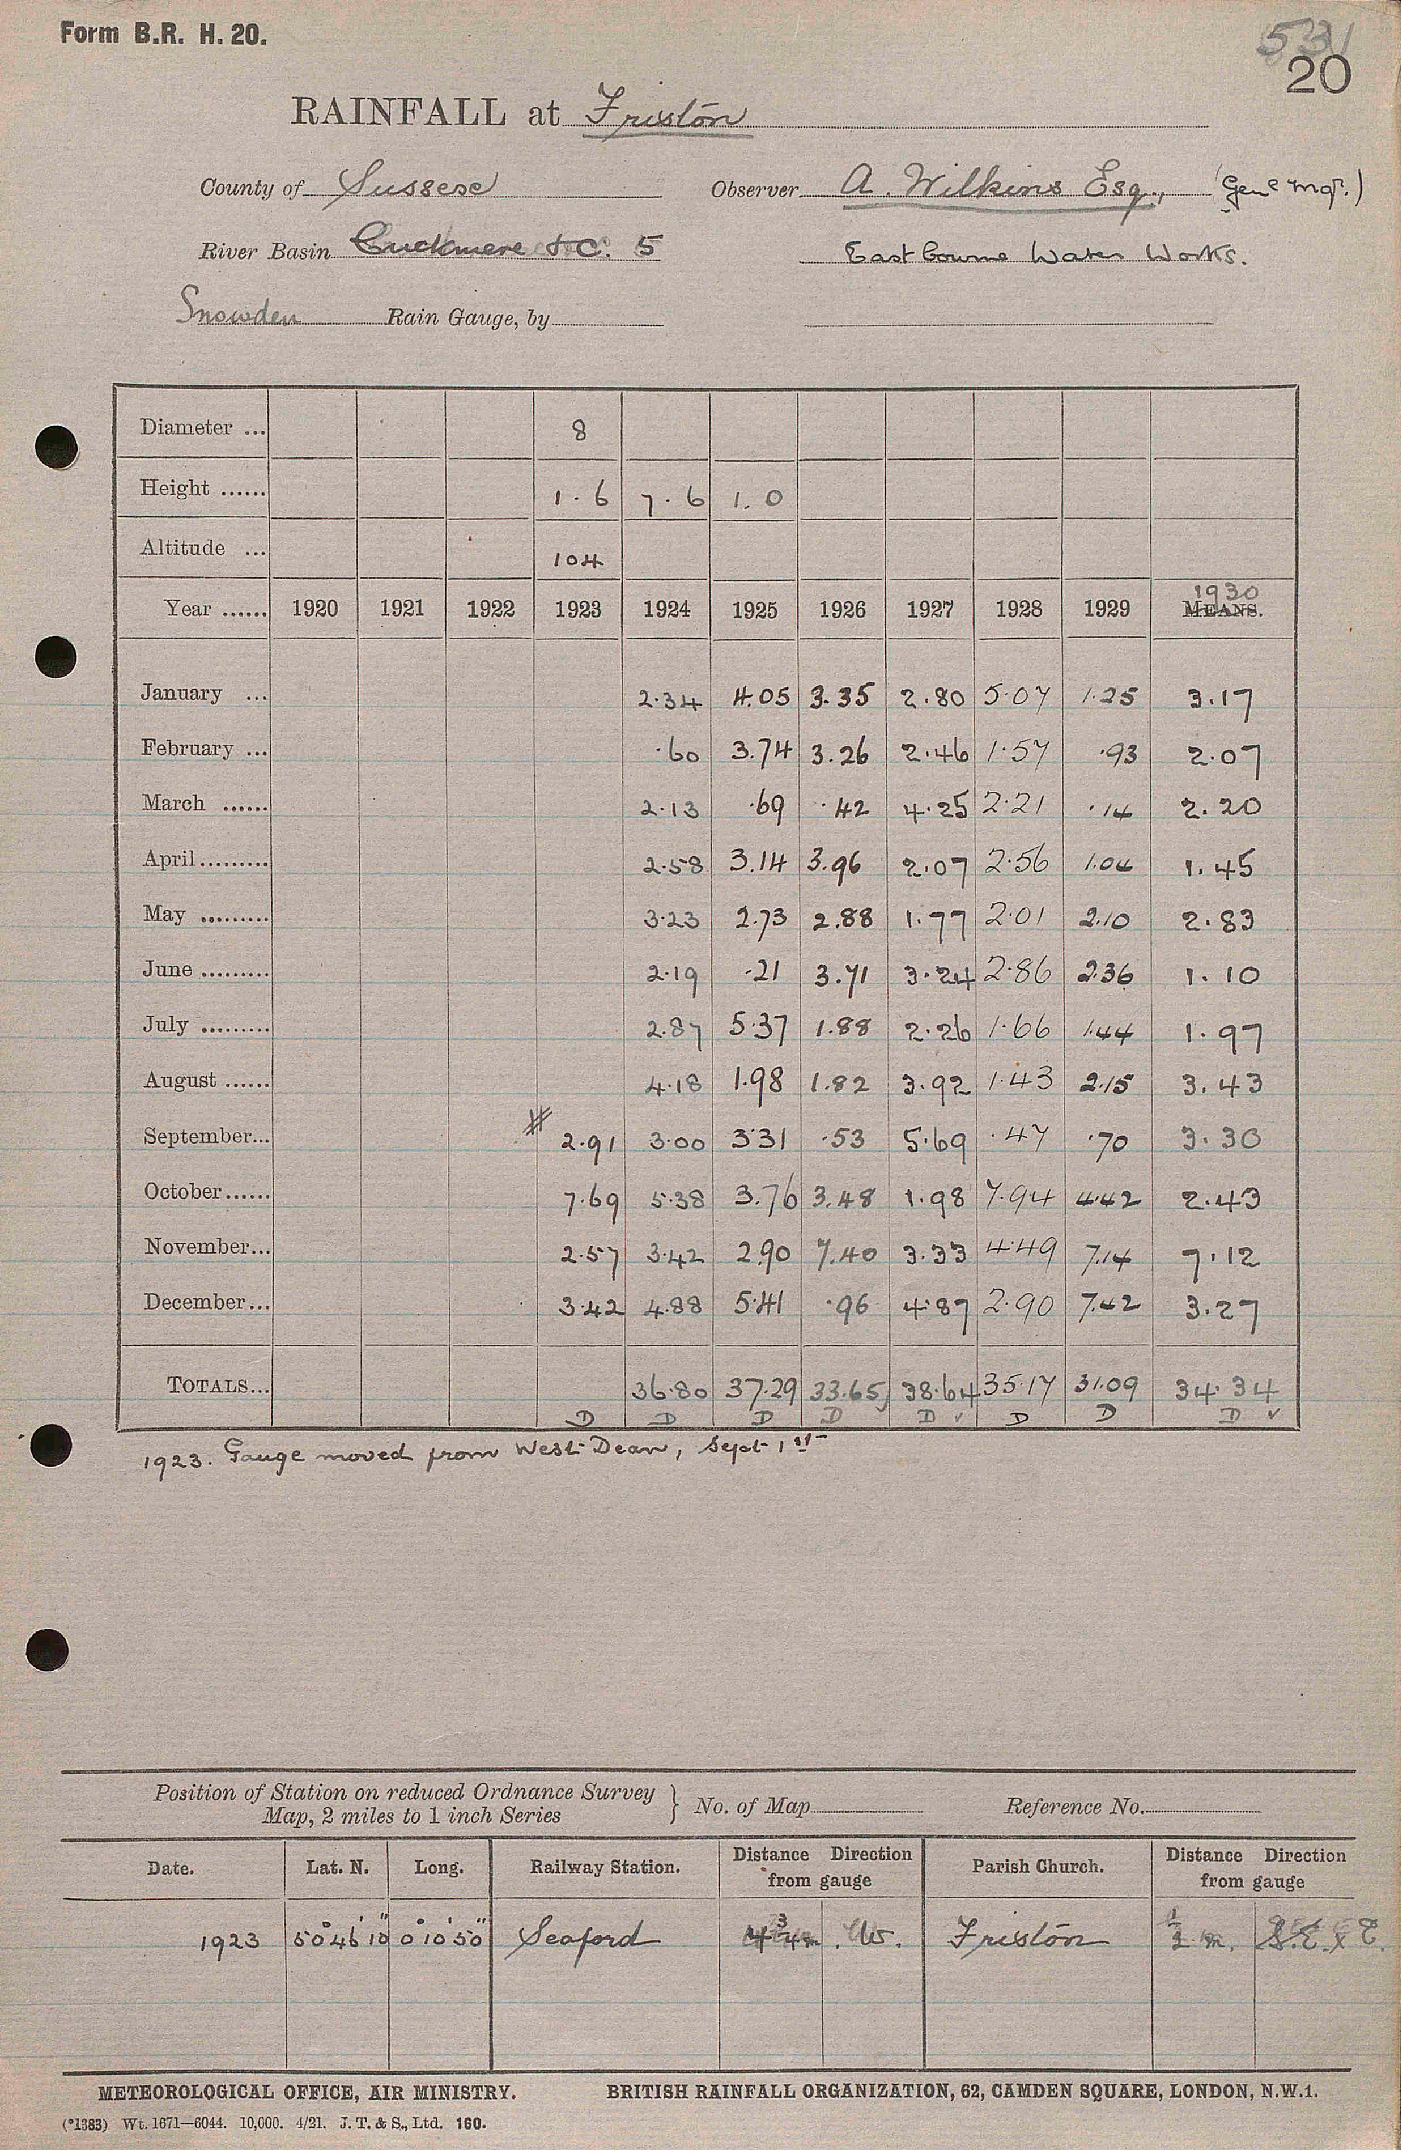 Form B.R. H. 20.
531
20
RAINFALL at Friston
County of Sussex Observer A. Wilkins Esq., (Genl Mgr.)
River Basin Cuckmere & C. 5 Eastbourne Water Works.
Snowden Rain Gauge, by
Diameter ... 8
Height ...... 1.6 7.6 1.0
Altitude ... 104
Year ...... 1920 1921 1922 1923 1924 1925 1926 1927 1928 1929 1930 MEANS.
January ... 2.34 4.05 3.35 2.80 5.07 1.25 3.17
February ... .60 3.74 3.26 2.46 1.57 .93 2.07
March ...... 2.13 .69 .42 4.25 2.21 .14 2.20
April ......... 2.58 3.14 3.96 2.07 2.56 1.04 1.45
May ......... 3.23 2.73 2.88 1.77 2.01 2.10 2.83
June ......... 2.19 .21 3.71 3.24 2.86 2.36 1.10
July ......... 2.87 5.37 1.88 2.26 1.66 1.44 1.97
August ...... 4.18 1.98 1.82 3.92 1.43 2.15 3.43
September... # 2.91 3.00 3.31 .53 5.69 .47 .70 3.30
October ...... 7.69 5.38 3.76 3.48 1.98 7.94 4.42 2.43
November... 2.57 3.42 2.90 7.40 3.33 4.49 7.14 7.12
December... 3.42 4.88 5.41 .96 4.87 2.90 7.42 3.27
TOTALS... 36.80 37.29 33.65 38.64 35.17 31.09 34.34
D D D D D ✓ D D D ✓
1923. Gauge moved from West Dean, Sept 1st
Position of Station on reduced Ordnance Survey
Map, 2 miles to 1 inch Series } No. of Map Reference No.
Date. Lat. N. Long. Railway Station. Distance Direction from gauge Parish Church. Distance Direction from gauge
1923 50° 46' 10" 0° 10' 50" Seaford 4 3/4 m. W. Friston 1/2 m. S.E. x E.
METEOROLOGICAL OFFICE, AIR MINISTRY. BRITISH RAINFALL ORGANIZATION, 62, CAMDEN SQUARE, LONDON, N.W.1.
(*1383) Wt. 1671—6044. 10,000. 4/21. J. T. & S., Ltd. 160.